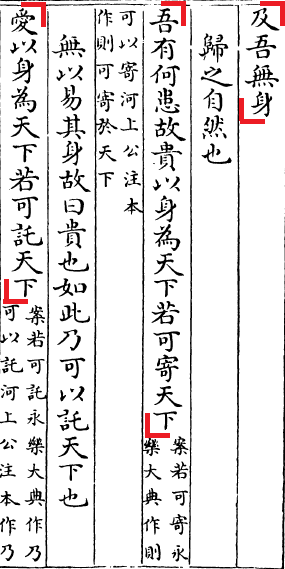 及吾無身
歸之自然也
吾有何患故貴以身為天下若可寄天下案若可寄永
樂大典作則
可以寄河上公注本
作則可寄於天下
無以易其身故曰貴也如此乃可以託天下也
愛以身為天下若可託天下案若可託永樂大典作乃
可以託河上公注本作乃